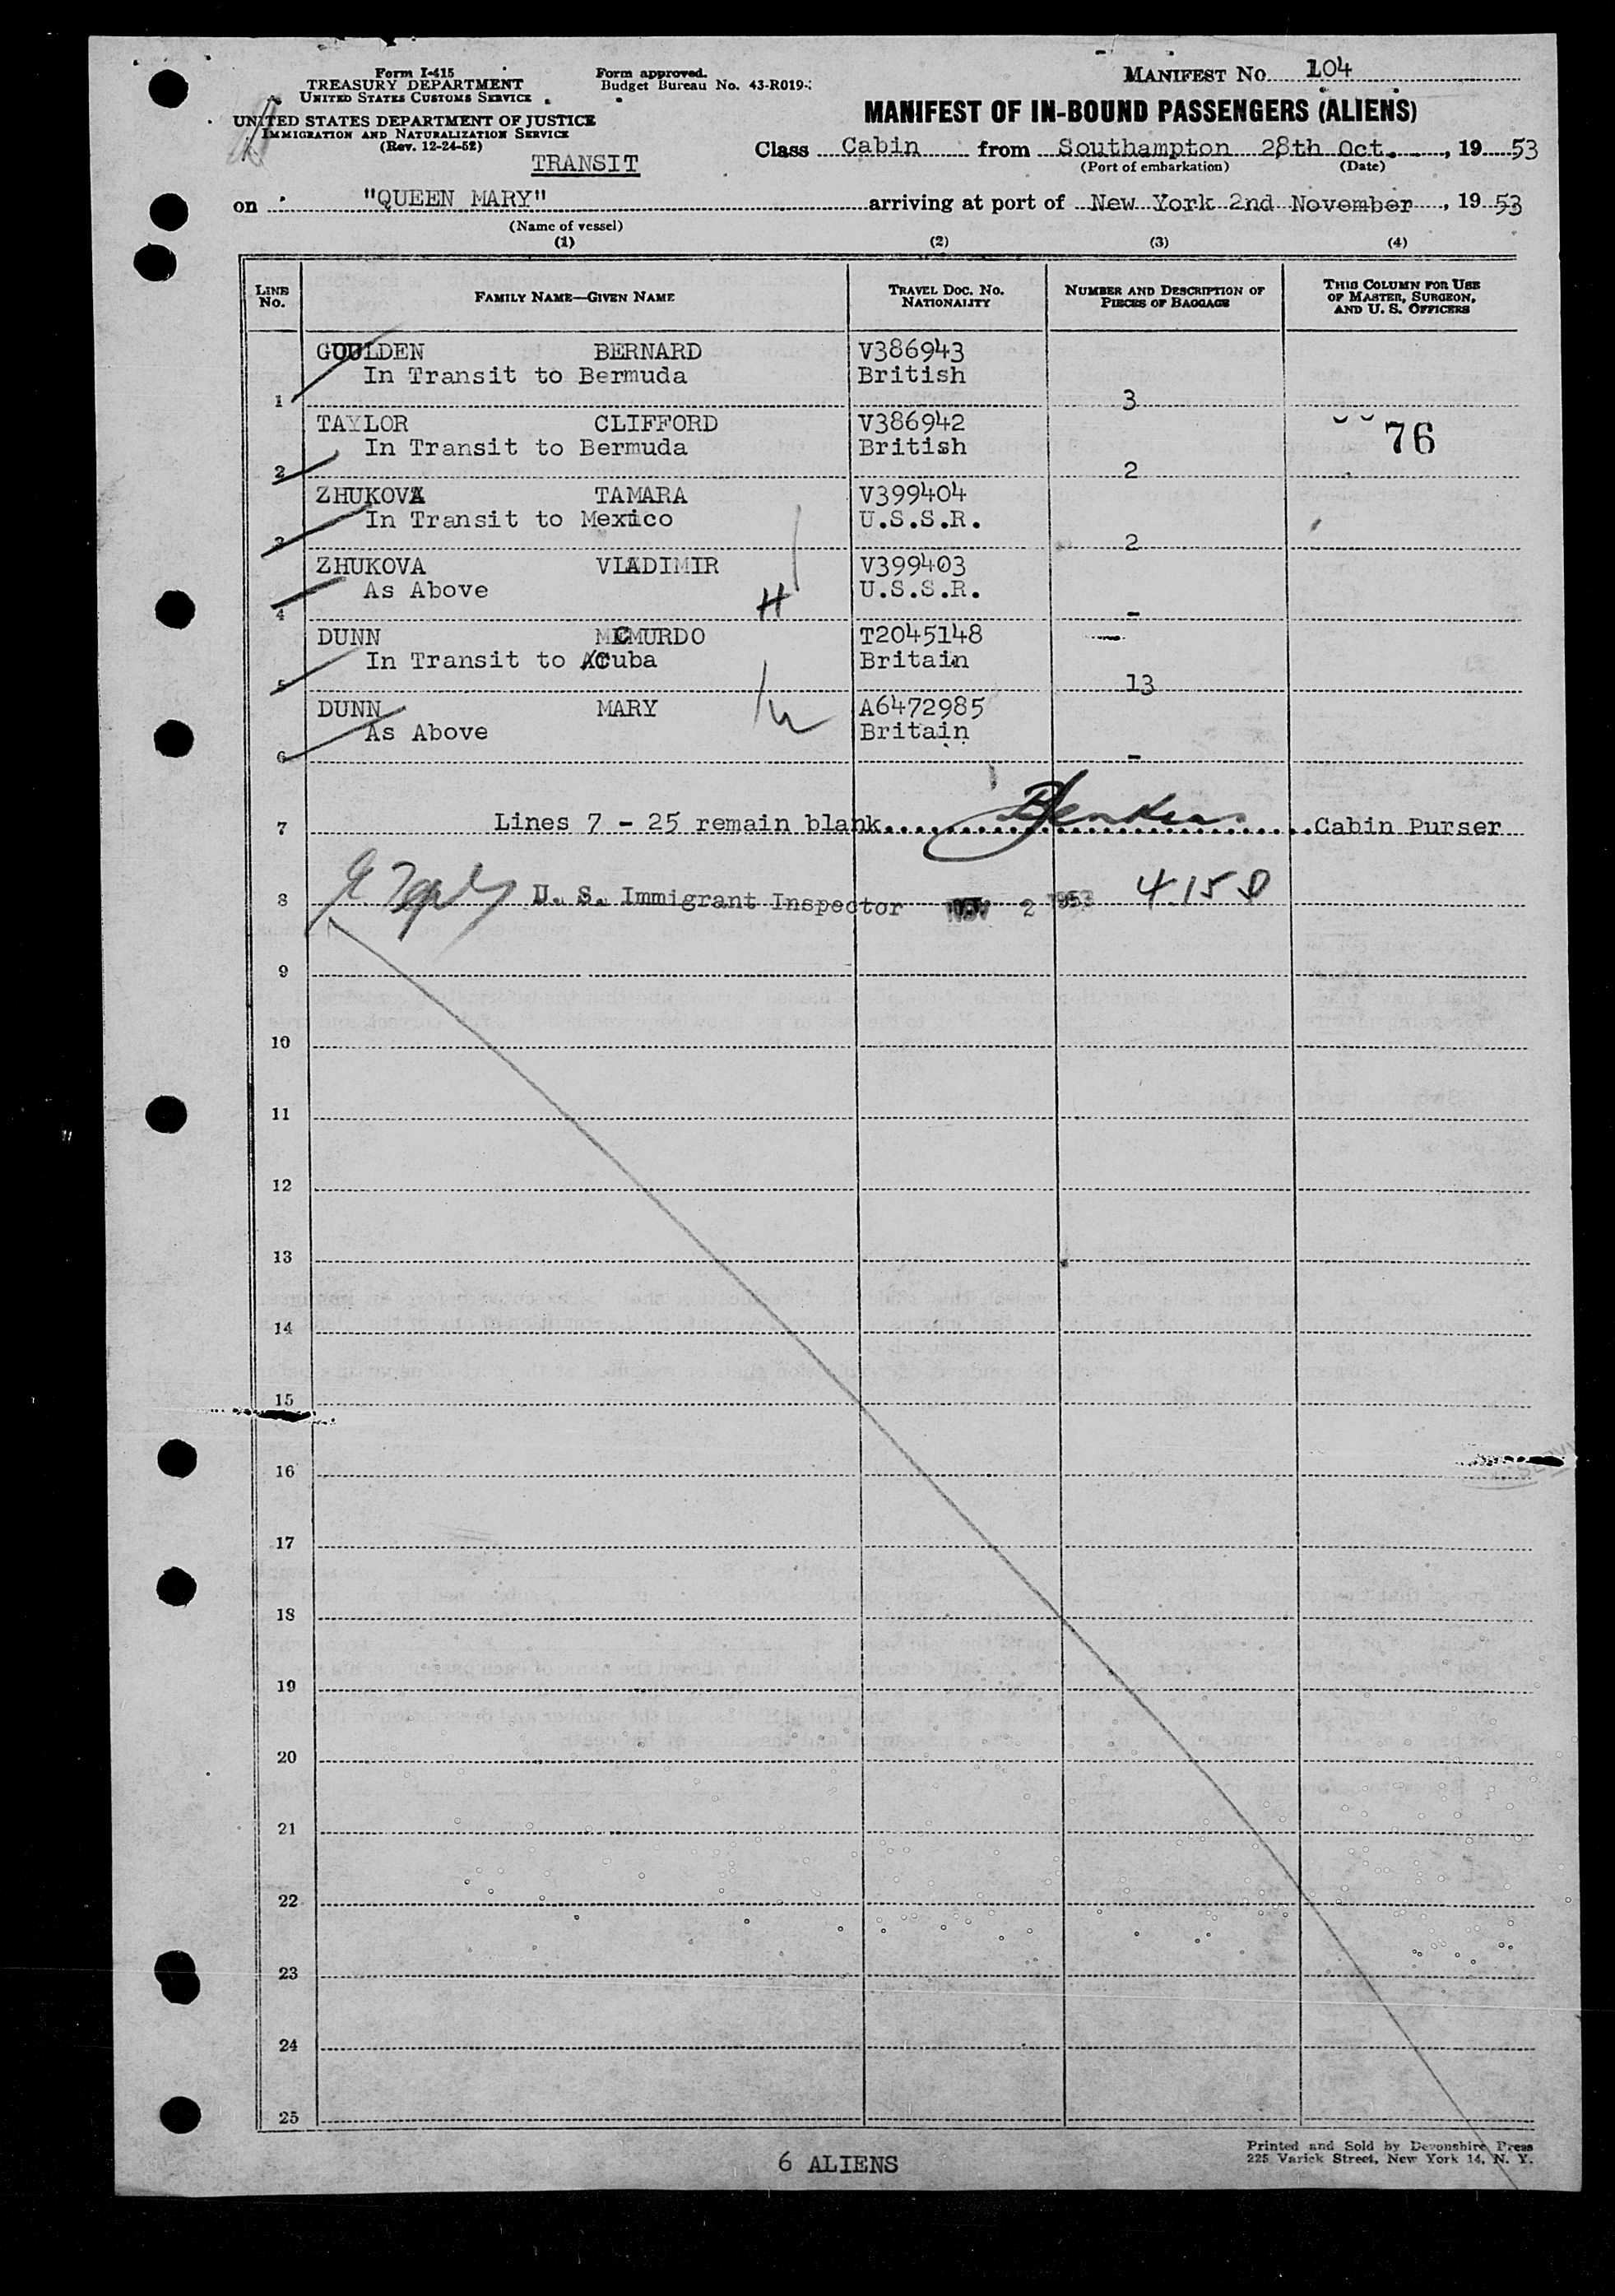 Form I-415
TREASURY DEPARTMENT
UNITED STATES CUSTOMS SERVICE
UNITED STATES DEPARTMENT OF JUSTICE
IMMIGRATION AND NATURALIZATION SERVICE
(Rev. 12-24-52)
Form approved.
Budget Bureau No. 43-R019-
TRANSIT
MANIFEST NO. 104
MANIFEST OF IN-BOUND PASSENGERS (ALIENS)
Class Cabin from Southampton 28th Oct. , 19 53
(Port of embarkation) (Date)
on "QUEEN MARY" arriving at port of New York 2nd November , 19 53
(Name of vessel)
(1) (2) (3) (4)
LINE NO. FAMILY NAME—GIVEN NAME TRAVEL DOC. NO. NATIONALITY NUMBER AND DESCRIPTION OF PIECES OF BAGGAGE THIS COLUMN FOR USE OF MASTER, SURGEON, AND U. S. OFFICERS
GOULDEN BERNARD V386943
In Transit to Bermuda British
1 3
TAYLOR CLIFFORD V386942 76
In Transit to Bermuda British
2 2
ZHUKOVA TAMARA V399404
In Transit to Mexico U.S.S.R.
3 2
ZHUKOVA VLADIMIR V399403
As Above U.S.S.R.
4 H -
DUNN MCMURDO T2045148
In Transit to Cuba Britain
5 13
DUNN MARY A6472985
As Above Britain
6 -
7 Lines 7 - 25 remain blank. Cabin Purser
8 U. S. Immigrant Inspector NOV 2 1953 4158
9
10
11
12
13
14
15
16
17
18
19
20
21
22
23
24
25
6 ALIENS
Printed and Sold by Devonshire Press
225 Varick Street, New York 14, N. Y.